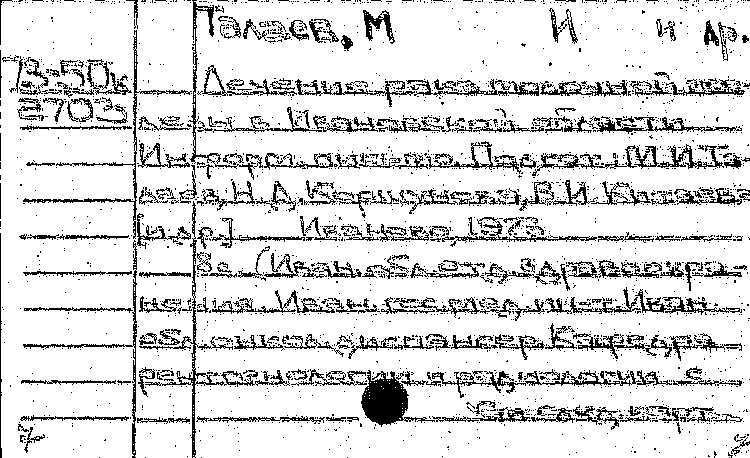 Талаев, М И и др.
73-50к Лечение рака молочной же-
2703 лезы в Ивановской области
Информ. письмо. Подгот.: М.И. Та-
лаев, Н.Д. В.И. Китаев
[и др.] Иваново, 1973
8с. (Иван. обл. отд. здравоохра-
нения. Иван. гос. мед. ин-т. Иван.
обл. онкол. диспансер. Кафедра
рентгенологии и радиологии с
См. след. карт.
7